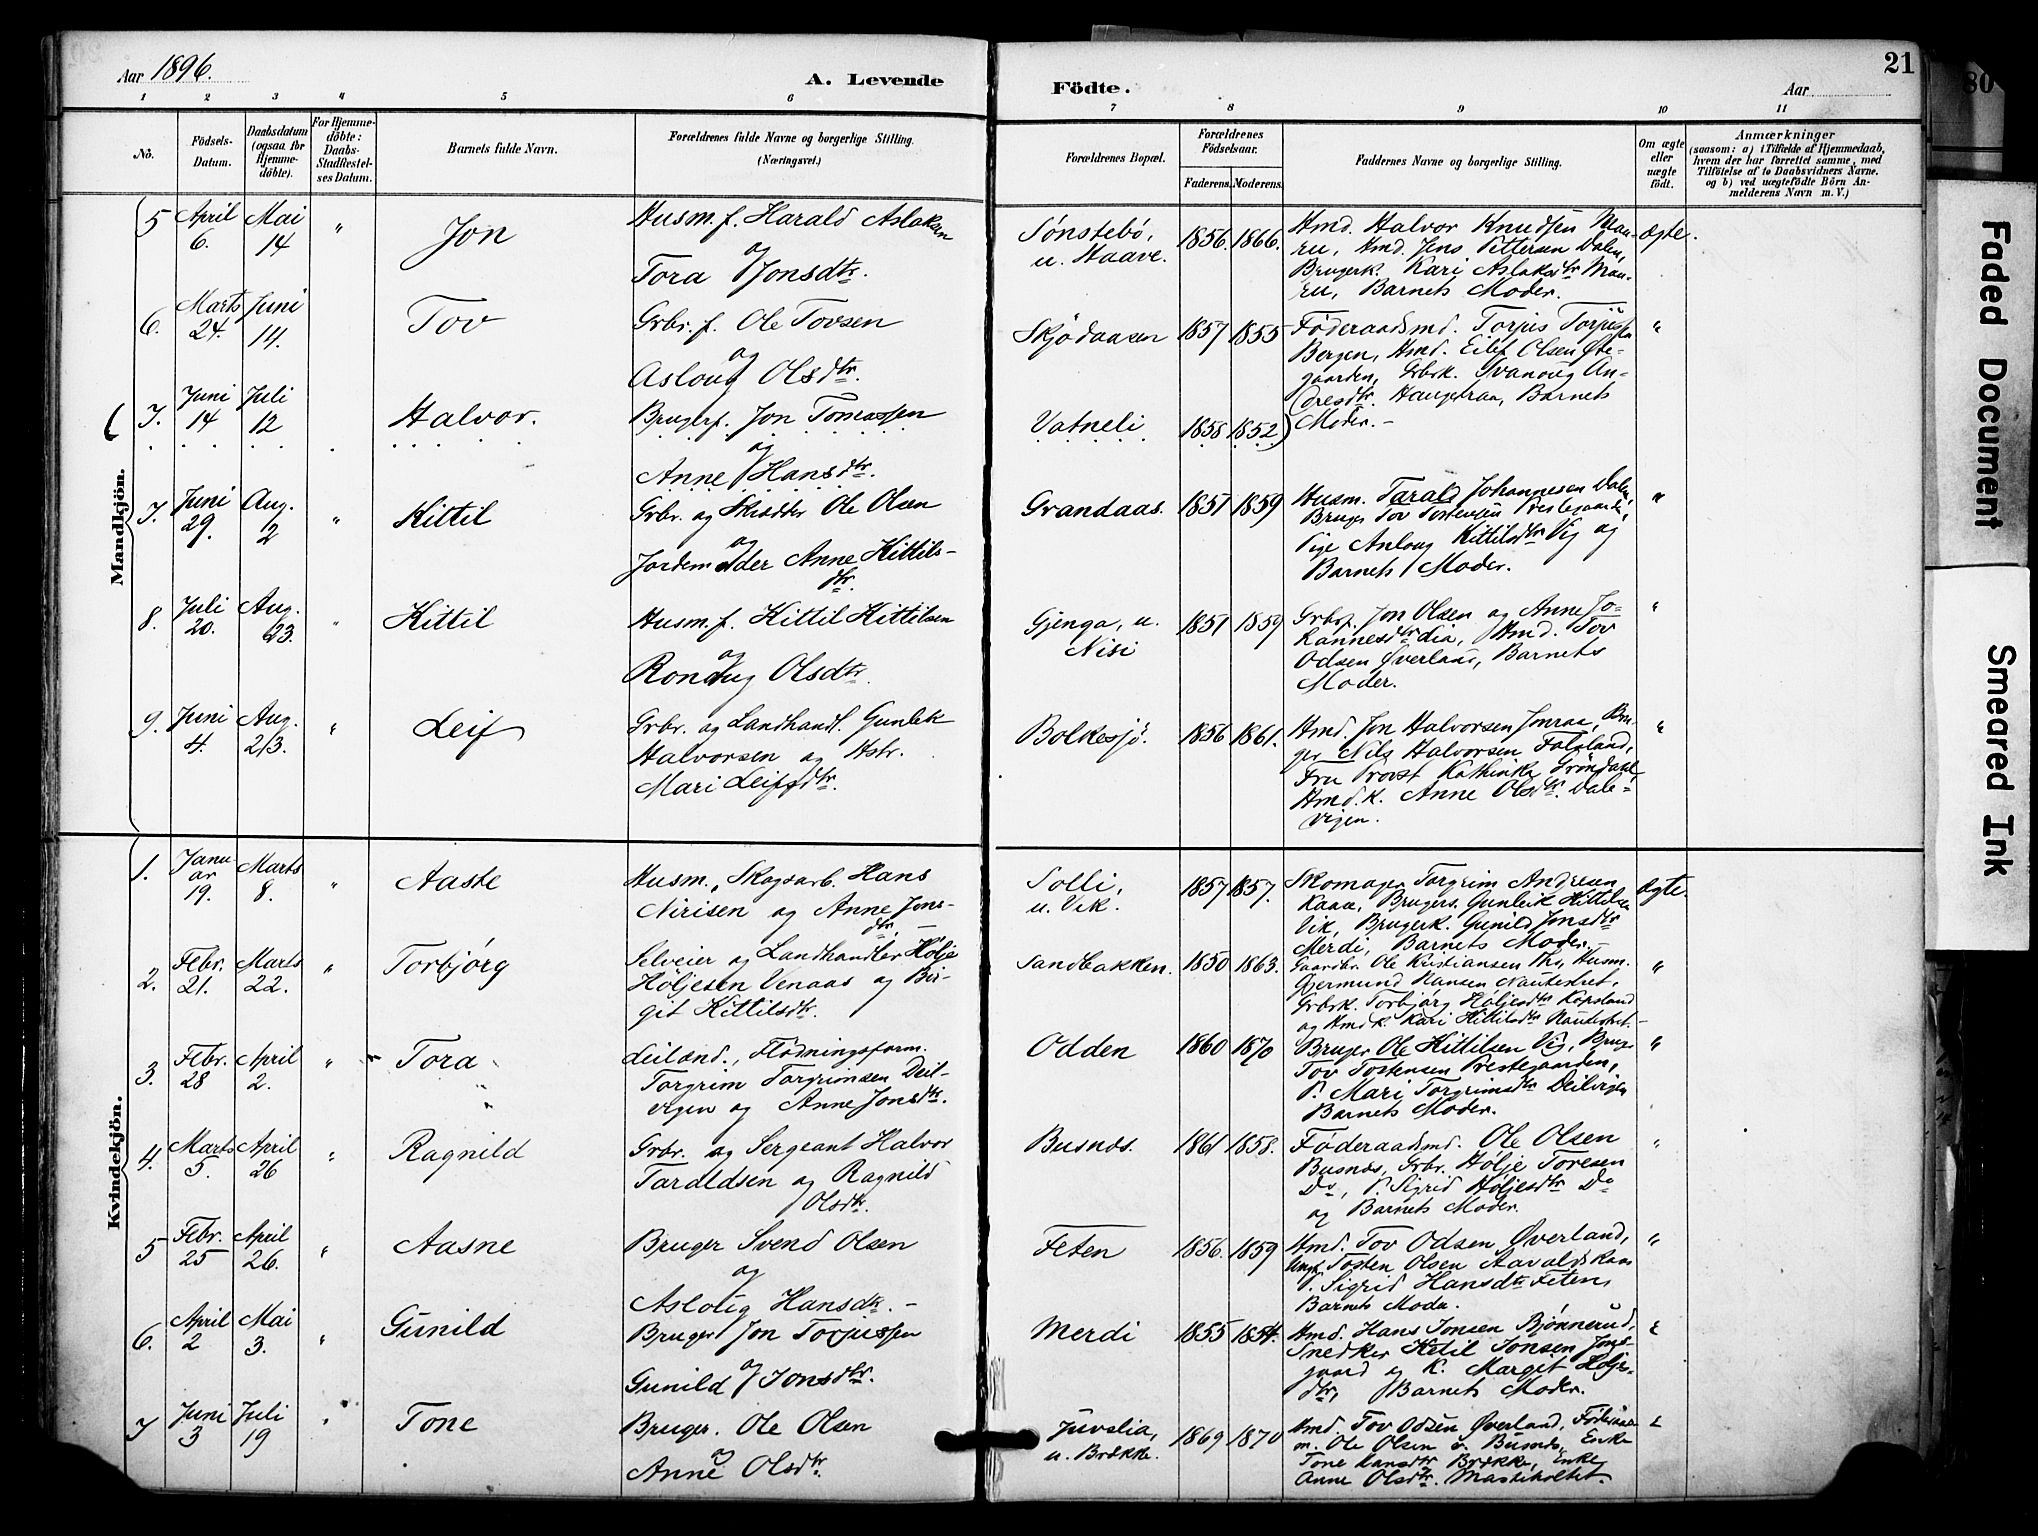 Aar 1896.
A. Levende
Födte.
Aar
21
80
1 2 3 4 5 6 7 8 9 10 11
No.
Födsels-
Datum.
Daabsdatum
(ogsaa for
Hjemme-
döbte).
For Hjemme-
döbte:
Daabs-
Stadfæstel-
ses Datum.
Barnets fulde Navn.
Forældrenes fulde Navne og borgerlige Stilling.
(Næringsvei.)
Forældrenes Bopæl.
Forældrenes
Födselsaar.
Faderens. Moderens.
Faddernes Navne og borgerlige Stilling.
Om ægte
eller
uægte
födt.
Anmærkninger
(saasom: a) i Tilfælde af Hjemmedaab,
hvem der har forrettet samme, med
Tilföielse af to Daabsvidners Navne.
og b) ved uægtefödte Börn An-
melderens Navn m. V.)
Mandkjön.
5 April 6. Mai 14 " Jon
Husm. f. Harald Aslaksen
og
Tora Jonsdtr.
Sønstebö,
u. Haave.
1856. 1866.
Hmd. Halvor Knudsen Mau-
ru, Hmd. Jens Pettersen Dalen,
Brugerk. Kari Aslaksdtr Mau-
ru, Barnets Moder.
ægte.
6. Marts 24. Juni 14. Tov
Grbr. f. Ole Tovsen
og
Asloug Olsdtr.
Skjödaasen
1857 1855
Föderaadsmd. Torjus Torjussen
Bergen, Hmd. Eilef Olsen Øte-
gaarden, Grbrk. Svanoug An-
dresdtr. Haugestraa, Barnets
Moder. -
"
7. Juni 14 Juli 12 Halvor.
Brugerf. Jon Tomassen
og
Anne Hansdtr.
Vatneli
1858 1852)
7. Juni 29. Aug. 2 " Kittil
Grbr. og Skrædder Ole Olsen
og
Jordemoder Anne Kittils-
dtr.
Grandaas.
1851 1859
Husm. Tarald Johannesen Dalen,
Bruger Tov Tostensen Prestegaarden,
Pige Anloug Kittilsdtr Vig og
Barnets Moder.
"
8. Juli 20. Aug. 23. " Kittil
Husm. f. Kittil Kittilsen
og
Ronoug Olsdtr.
Gjenga, u.
Nisi
1851 1859
Grbrf. Jon Olsen og Anne Jo-
hannesdtr Lia, Hmd. Tov
Odsen Øverland, Barnets
Moder.
"
9. Juni 4. Aug. 23. " Leif
Grbr. og Landhandl. Gunlek
Halvorsen og Hstr.
Mari Leifsdtr.
Bolkesjö.
1856 1861.
Hmd. Jon Halvorsen Jonraa, Bru-
ger Nils Halvorsen Falsland,
Fru Provst Kathinka Gröndahl,
Hmd. K. Anne Olsdtr. Dale-
vigen.
"
Kvindekjön.
1. Janu-
ar 19. Marts 8. " Aaste
Husm., Skogsarb. Hans
Nirisen og Anne Jons-
dtr. -
Solli,
u. Vik.
1857 1857.
Skomager Torgrim Andresen
Kaaa, Brugers. Gunleik Kittilsen
Vik, Brugerk. Gunild Jonsdtr
Merdi, Barnets Moder. -
ægte.
2. Febr. 21. Marts 22. " Torbjörg
Selveier og Landhandler Hölje
Höljesen Venaas og Bir-
git Kittilsdtr.
Sandbakken.
1850 1863.
Gaardbr. Ole Kristiansen Tho, Husm.
Gjermund Hansen Nautestret,
Grbrk. Torbjörg Höljesdtr Kopsland
og Hmdk. Kari Kittilsdtr Nautestret. -
"
3. Febr. 28 April 2. " Tora
Leilænd., Flödningsform.
Torgrim Torgrimsen Deil-
vigen og Anne Jonsdtr.
Odden
1860 1870
Bruger Ole Kittilsen Vig, Bruger
Tov Tostensen Prestegaarden,
P. Mari Torgrimsdtr Deilvigen
Barnets Moder.
"
4. Marts 5. April 26 " Ragnild
Grbr. og Sergeant Halvor
Taraldsen og Ragnild
Olsdtr.
Busnes.
1861 1858.
Föderaadsmd. Ole Olsen
Busnes, Grbr. Hölje Toresen
Do, P. Sigrid Höljesdtr Do
og Barnets Moder.
"
5 Febr. 25 April 26. " Aasne
Bruger Svend Olsen
og
Asloug Hansdtr. -
Feten
1856. 1859
Hmd. Tov Odsen Øverland,
Ungk. Tosten Olsen Aavaldskaas
P. Sigrid Hansdtr Feten,
Barnets Moder.
"
6. April 2 Mai 3. " Gunild
Bruger Jon Torjussen
og
Gunild Jonsdtr.
Merdi
1855 1854.
Hmd. Hans Jonsen Bjönnerud,
Snedker Ketil Jonsen Jons-
gaard og K. Margit Höljes-
dtr, Barnets Moder.
"
7 Juni 3 Juli 19 " Tone
Bruger. Ole Olsen
og
Anne Olsdtr.
Juvslia,
u. Brække.
1869 1870
Hmd. Tov Odsen Øverland, Föderaads-
m. Ole Olsen v. Busnes, Enke
Tone Hansdtr Brække, Enke
Anne Olsdtr. Mastekoltet.
"
Faded Document
Smeared Ink